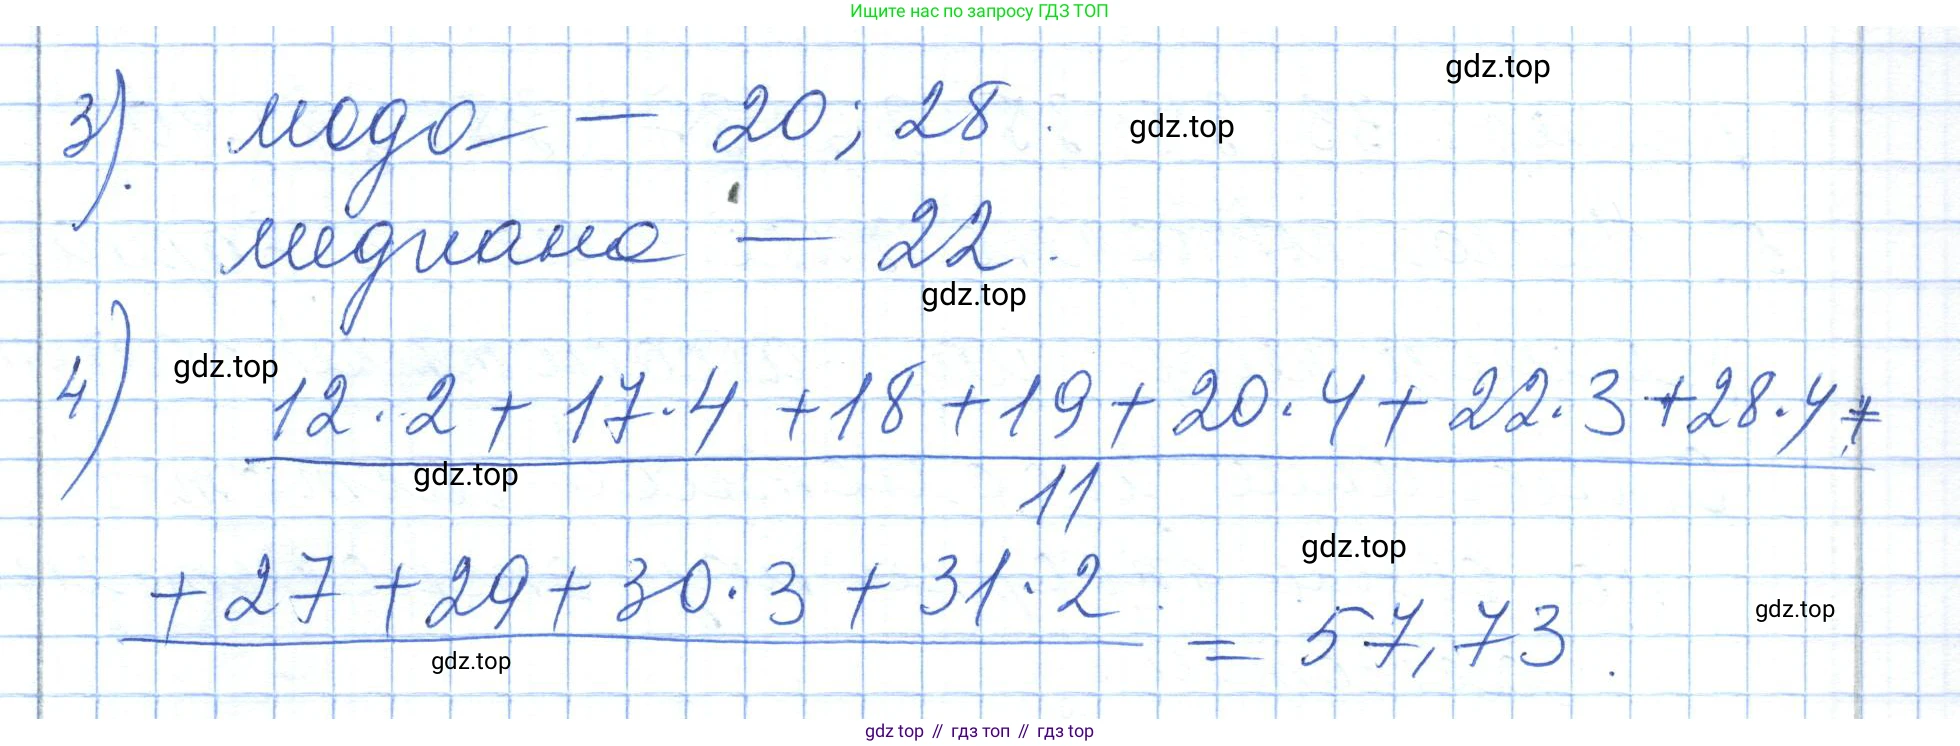 Ищите нас по запросу ГДЗ ТОП
gdz.top
3). мода — 20; 28.
gdz.top
медиана — 22.
gdz.top
gdz.top
4) 12·2 + 17·4 + 18 + 19 + 20·4 + 22·3 + 28·4 +
gdz.top
11
gdz.top
+ 27 + 29 + 30·3 + 31·2
= 57,73.
gdz.top
gdz.top
gdz top // гдз топ // гдз top